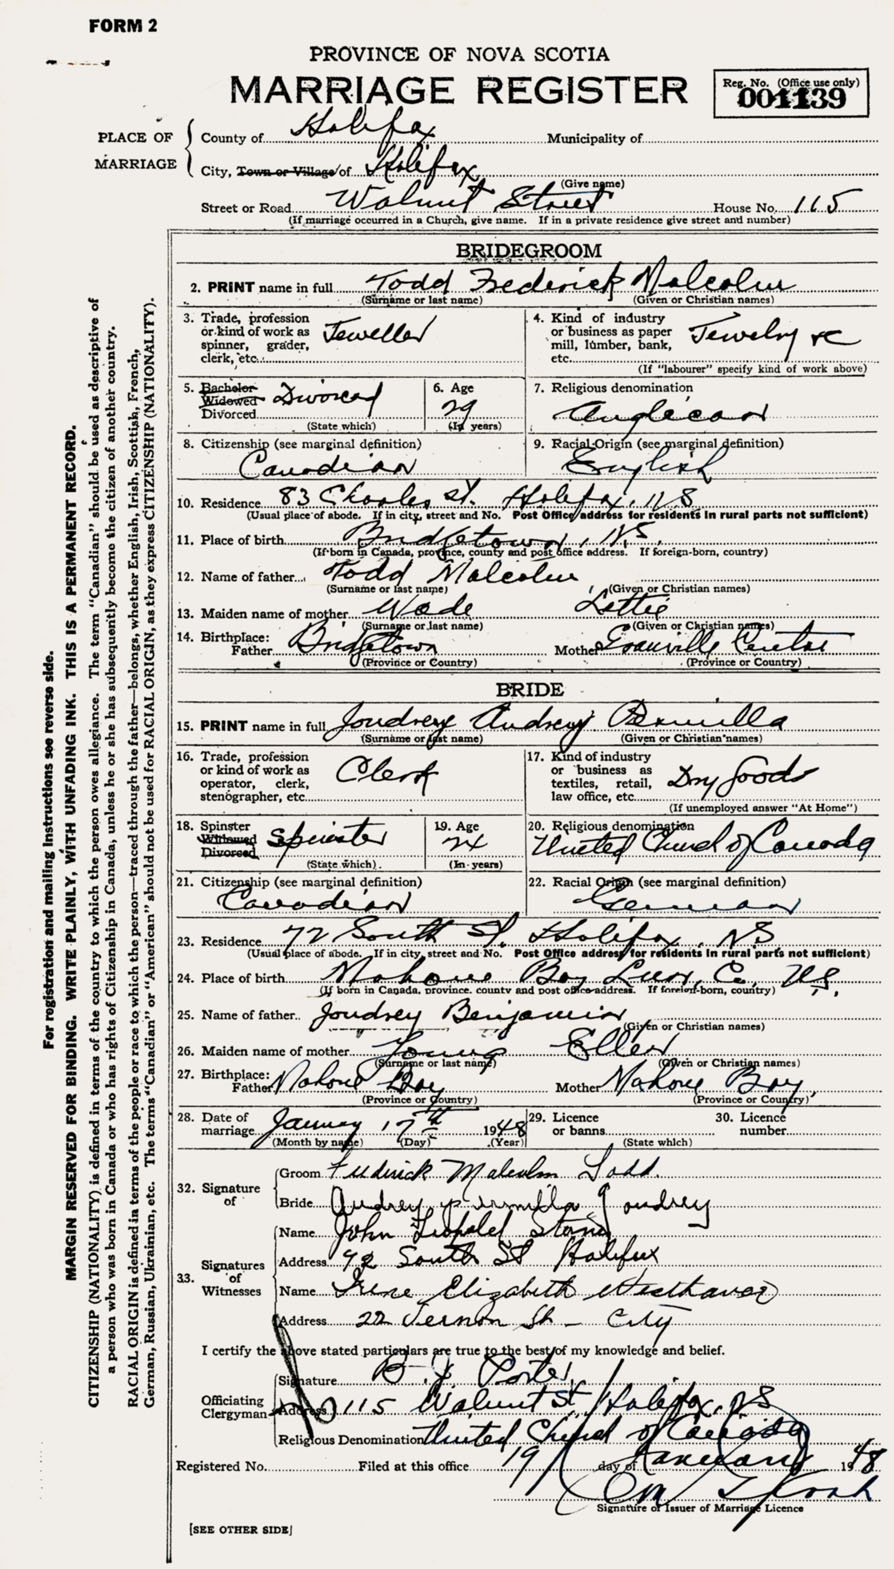 FORM 2
PROVINCE OF NOVA SCOTIA
MARRIAGE REGISTER
Reg. No. (Office use only)
001139
PLACE OF MARRIAGE
County of Halifax Municipality of
City, Town or Village of Halifax
(Give name)
Street or Road Walnut Street House No. 115
(If marriage occurred in a Church, give name. If in a private residence give street and number)
BRIDEGROOM
2. PRINT name in full Todd Frederick Malcolm
(Surname or last name) (Given or Christian names)
3. Trade, profession or kind of work as spinner, grader, clerk, etc. Jeweller
4. Kind of industry or business as paper mill, lumber, bank, etc. Jewelry &c
(If "labourer" specify kind of work above)
5. Bachelor Widowed Divorced Divorced
(State which)
6. Age 29
(In years)
7. Religious denomination Anglican
8. Citizenship (see marginal definition) Canadian
9. Racial Origin (see marginal definition) English
10. Residence 83 Charles St. Halifax, N.S
(Usual place of abode. If in city, street and No. Post Office address for residents in rural parts not sufficient)
11. Place of birth Bridgetown, N.S.
(If born in Canada, province, county and post office address. If foreign-born, country)
12. Name of father Todd Malcolm
(Surname or last name) (Given or Christian names)
13. Maiden name of mother Wade Lottie
(Surname or last name) (Given or Christian names)
14. Birthplace: Father Bridgetown Mother Granville Centre
(Province or Country) (Province or Country)
BRIDE
15. PRINT name in full Joudrey Audrey Permilla
(Surname or last name) (Given or Christian names)
16. Trade, profession or kind of work as operator, clerk, stenographer, etc. Clerk
17. Kind of industry or business as textiles, retail, law office, etc. Dry Goods
(If unemployed answer "At Home")
18. Spinster Widowed Divorced Spinster
(State which)
19. Age 24
(In years)
20. Religious denomination United Church of Canada
21. Citizenship (see marginal definition) Canadian
22. Racial Origin (see marginal definition) German
23. Residence 72 South St. Halifax, NS
(Usual place of abode. If in city, street and No. Post Office address for residents in rural parts not sufficient)
24. Place of birth Mahone Bay Lun. Co. N.S.
(If born in Canada, province, county and post office address. If foreign-born, country)
25. Name of father Joudrey Benjamin
(Given or Christian names)
26. Maiden name of mother Young Ellen
(Surname or last name) (Given or Christian names)
27. Birthplace: Father Mahone Bay Mother Mahone Bay
(Province or Country) (Province or Country)
28. Date of marriage January 17th 1948
(Month by name) (Day) (Year)
29. Licence or banns
(State which)
30. Licence number
32. Signature of
Groom Frederick Malcolm Todd
Bride Audrey permilla Joudrey
33. Signatures of Witnesses
Name John Leopold
Address 92 South St Halifax
Name Irene Elizabeth Westhaver
Address 22 Vernon St - City
I certify the above stated particulars are true to the best of my knowledge and belief.
Officiating Clergyman
Signature B. J. Porter
Address 115 Walnut St Halifax, NS
Religious Denomination United Church of Canada
Registered No. Filed at this office 19 day of January 1948
Signature of Issuer of Marriage Licence
[SEE OTHER SIDE]
For registration and mailing instructions see reverse side.
MARGIN RESERVED FOR BINDING. WRITE PLAINLY, WITH UNFADING INK. THIS IS A PERMANENT RECORD.
CITIZENSHIP (NATIONALITY) is defined in terms of the country to which the person owes allegiance. The term "Canadian" should be used as descriptive of
a person who was born in Canada or who has rights of Citizenship in Canada, unless he or she has subsequently become the citizen of another country.
RACIAL ORIGIN is defined in terms of the people or race to which the person—traced through the father—belongs, whether English, Irish, Scottish, French,
German, Russian, Ukrainian, etc. The terms "Canadian" or "American" should not be used for RACIAL ORIGIN, as they express CITIZENSHIP (NATIONALITY).